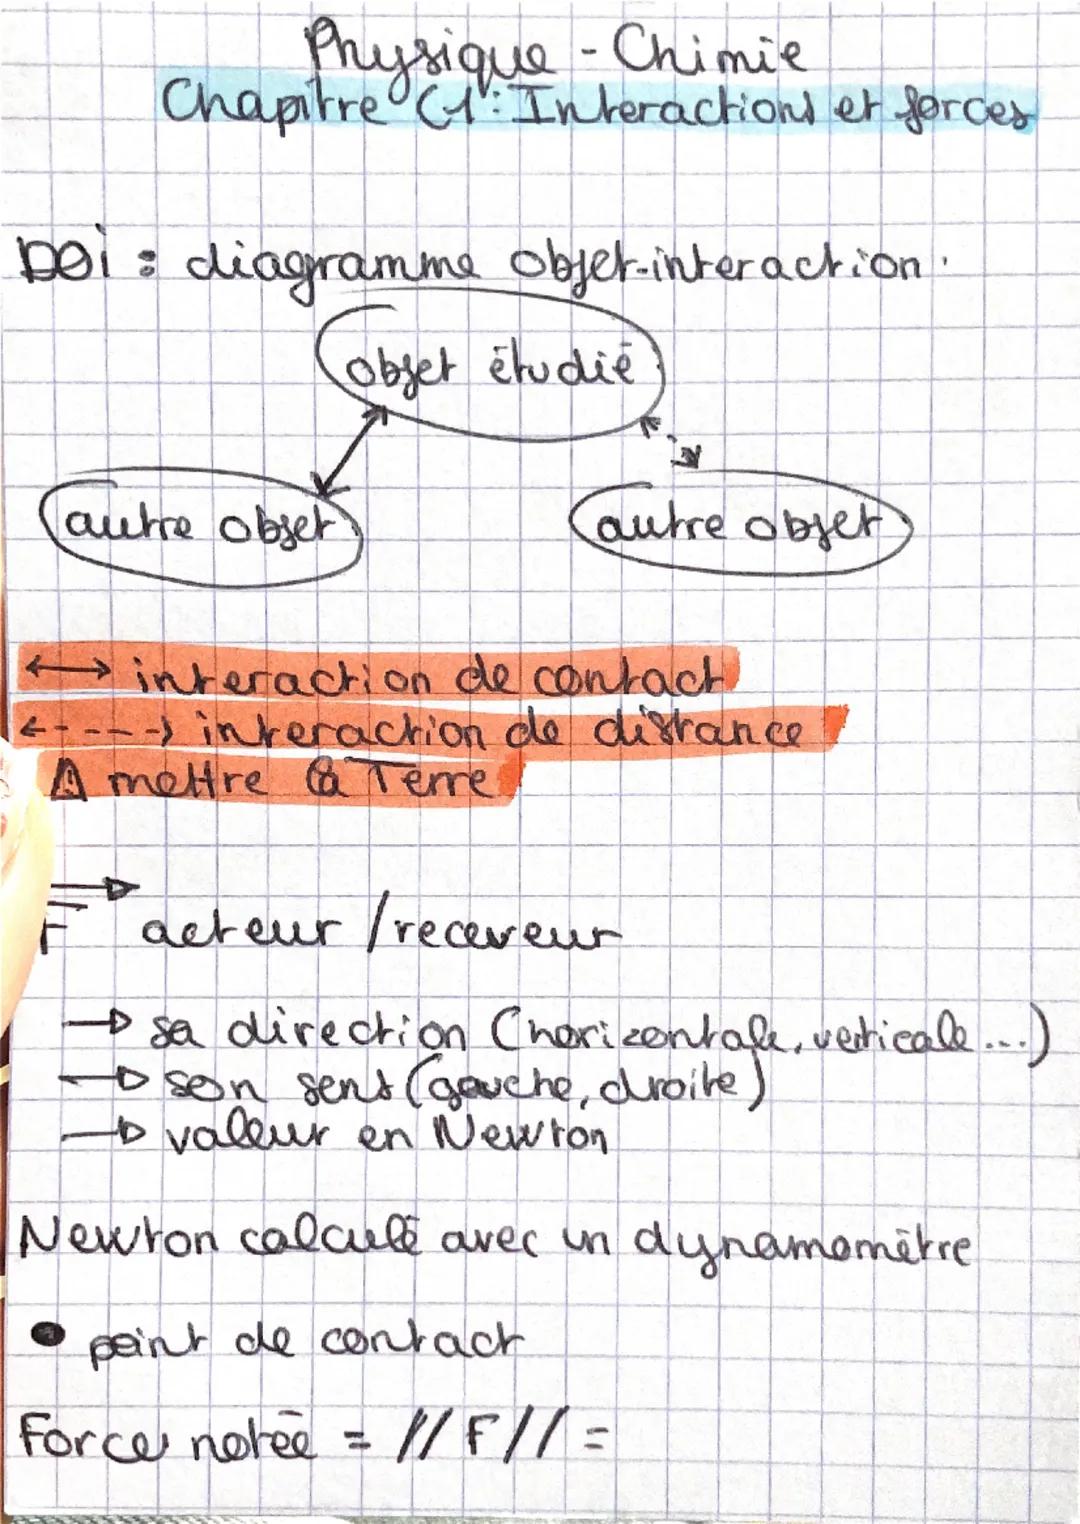 Physique - Chimie
Chapitre C1 : Interactions et forces
DOi : diagramme objet-interaction.
objet étudié
autre objet
autre objet
←→ interaction de contact
←----→ interaction de distance
⚠ mettre la Terre
F acteur / receveur
→ sa direction (horizontale, verticale...)
→ son sens (gauche, droite)
→ valeur en Newton
Newton calculé avec un dynamomètre
• point de contact
Force notée = // F // =